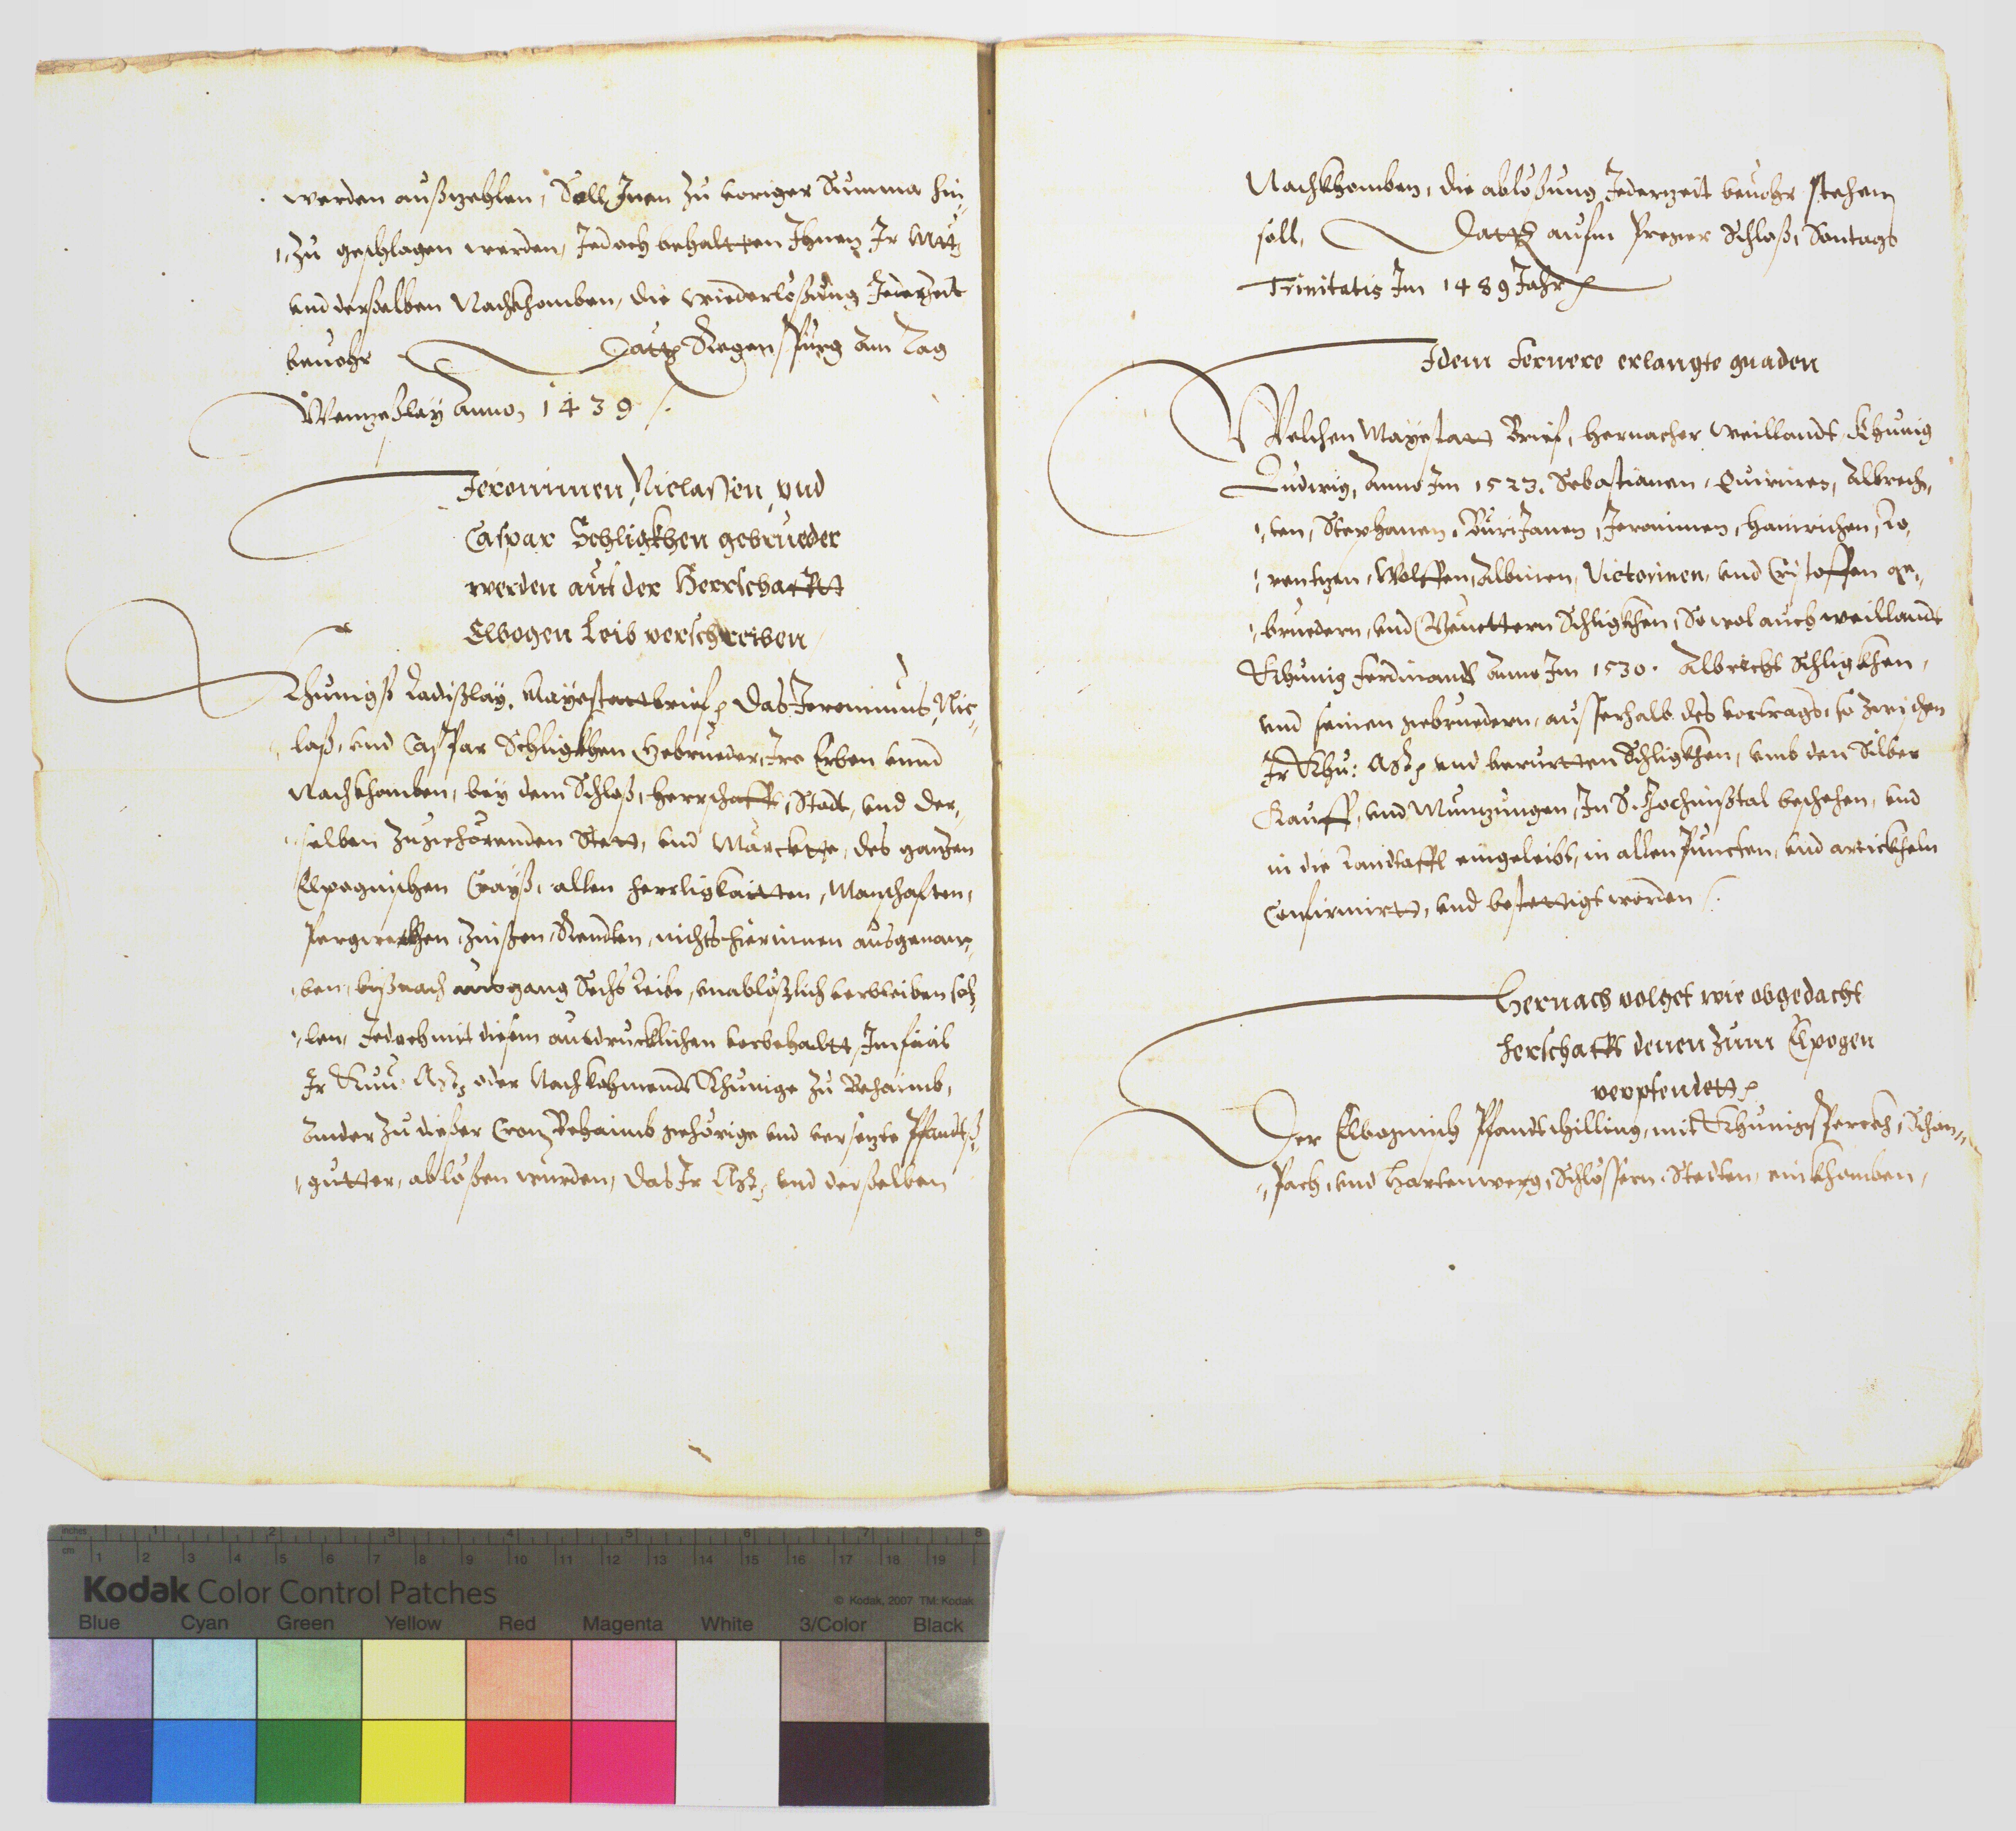 werden außzehlen, Soll Inen zu voriger Summa hin,
zu geschlagen werden, Jedoch behaltten Ihnen Ir Mtt
vnd derselben Nachkhomben, die wiederlößung Jederzeit
beuohr Datt Regenspurg am Tag
Wenzeßlay Anno, 1439
Jeronimen, Niclassen, vnd
Caspar Schligkhen gebrueder
werden auf der Herrschafftt
Elbogen Leib verschreiben
Khunigß Ladißlay, Mayestattbrief, das Jeronimus, Nic,
laß, vnd Caspar Schligkhen Gebrueder, Ire Erben vnnd
Nachkhomben, bey dem Schloß, herrschafft, Stadt, vnd der,
selben zugehörenden Stett, vnd Märckte, des ganzen
Elpognischen Crayß, allen herrligkaitten, Manschaften,
Pergwerkhen, Zinßen, Rendten, nichts hierinnen ausgenom,
ben, biß nach ausgang Sechs Leibe, vnablößlich verbleiben sol,
len, Jedoch mit diesem austrucklichen vorbehaltt, Im faal
Ir Kuu: Mtt, oder Nachkohmende Khunige zu Behaimb,
ander zu dießer Cron Behaimb gehörige vnd versezte Pfandtß,
gutter, ablößen wurden, das Ir Mtt, vnd derselben
Nachkhomben, die ablößung Jederzeit beuohr stehen
soll, Datt aufm Prager Schloß, Sontags
Trinitatis Im 1489 Jahr
Idem Fernere erlangte gnaden
Welchen Mayestatt Brief, hernacher weillandt, Khunig
Ludwig, Anno Im 1523. Sebastianen, Quirinen, Albrech,
ten, Stephanen, Burianen, Jeronimen, Hainrichen, Lo,
rentzen, Wolffen, Albinen, Victorinen, vnd Cristoffen ge,
bruedern, vnd Veuettern Schligkhen, So wol auch weillandt
Khunig Ferdinandt Anno Im 1530. Albrecht Schligkhen,
vnd seinen gebruedern, ausserhalb des vertrags, so zwischen
Ir Khu: Mtt, vnd berurtten Schligkhen, vmb den Silber
Kauff, vnd Munzungen, In S. Jochimßtal beschehen, vnd
in die Landtaffl eingeleibt, in allen Puncten, vnd artickheln
Confirmirtt, vnd bestettigt worden
Hernach volget wie obgedacht
herschafft denen zum Elpogen
verpfendett
Der Elbognisch Pfandtschilling, mit Khunigsperckh, Schön,
pach, vnd Hartenwerg, Schlössern, Stedten, einkhomben,
inches 1 2 3 4 5 6 7 8
cm 1 2 3 4 5 6 7 8 9 10 11 12 13 14 15 16 17 18 19
Kodak Color Control Patches © Kodak, 2007 TM: Kodak
Blue Cyan Green Yellow Red Magenta White 3/Color Black